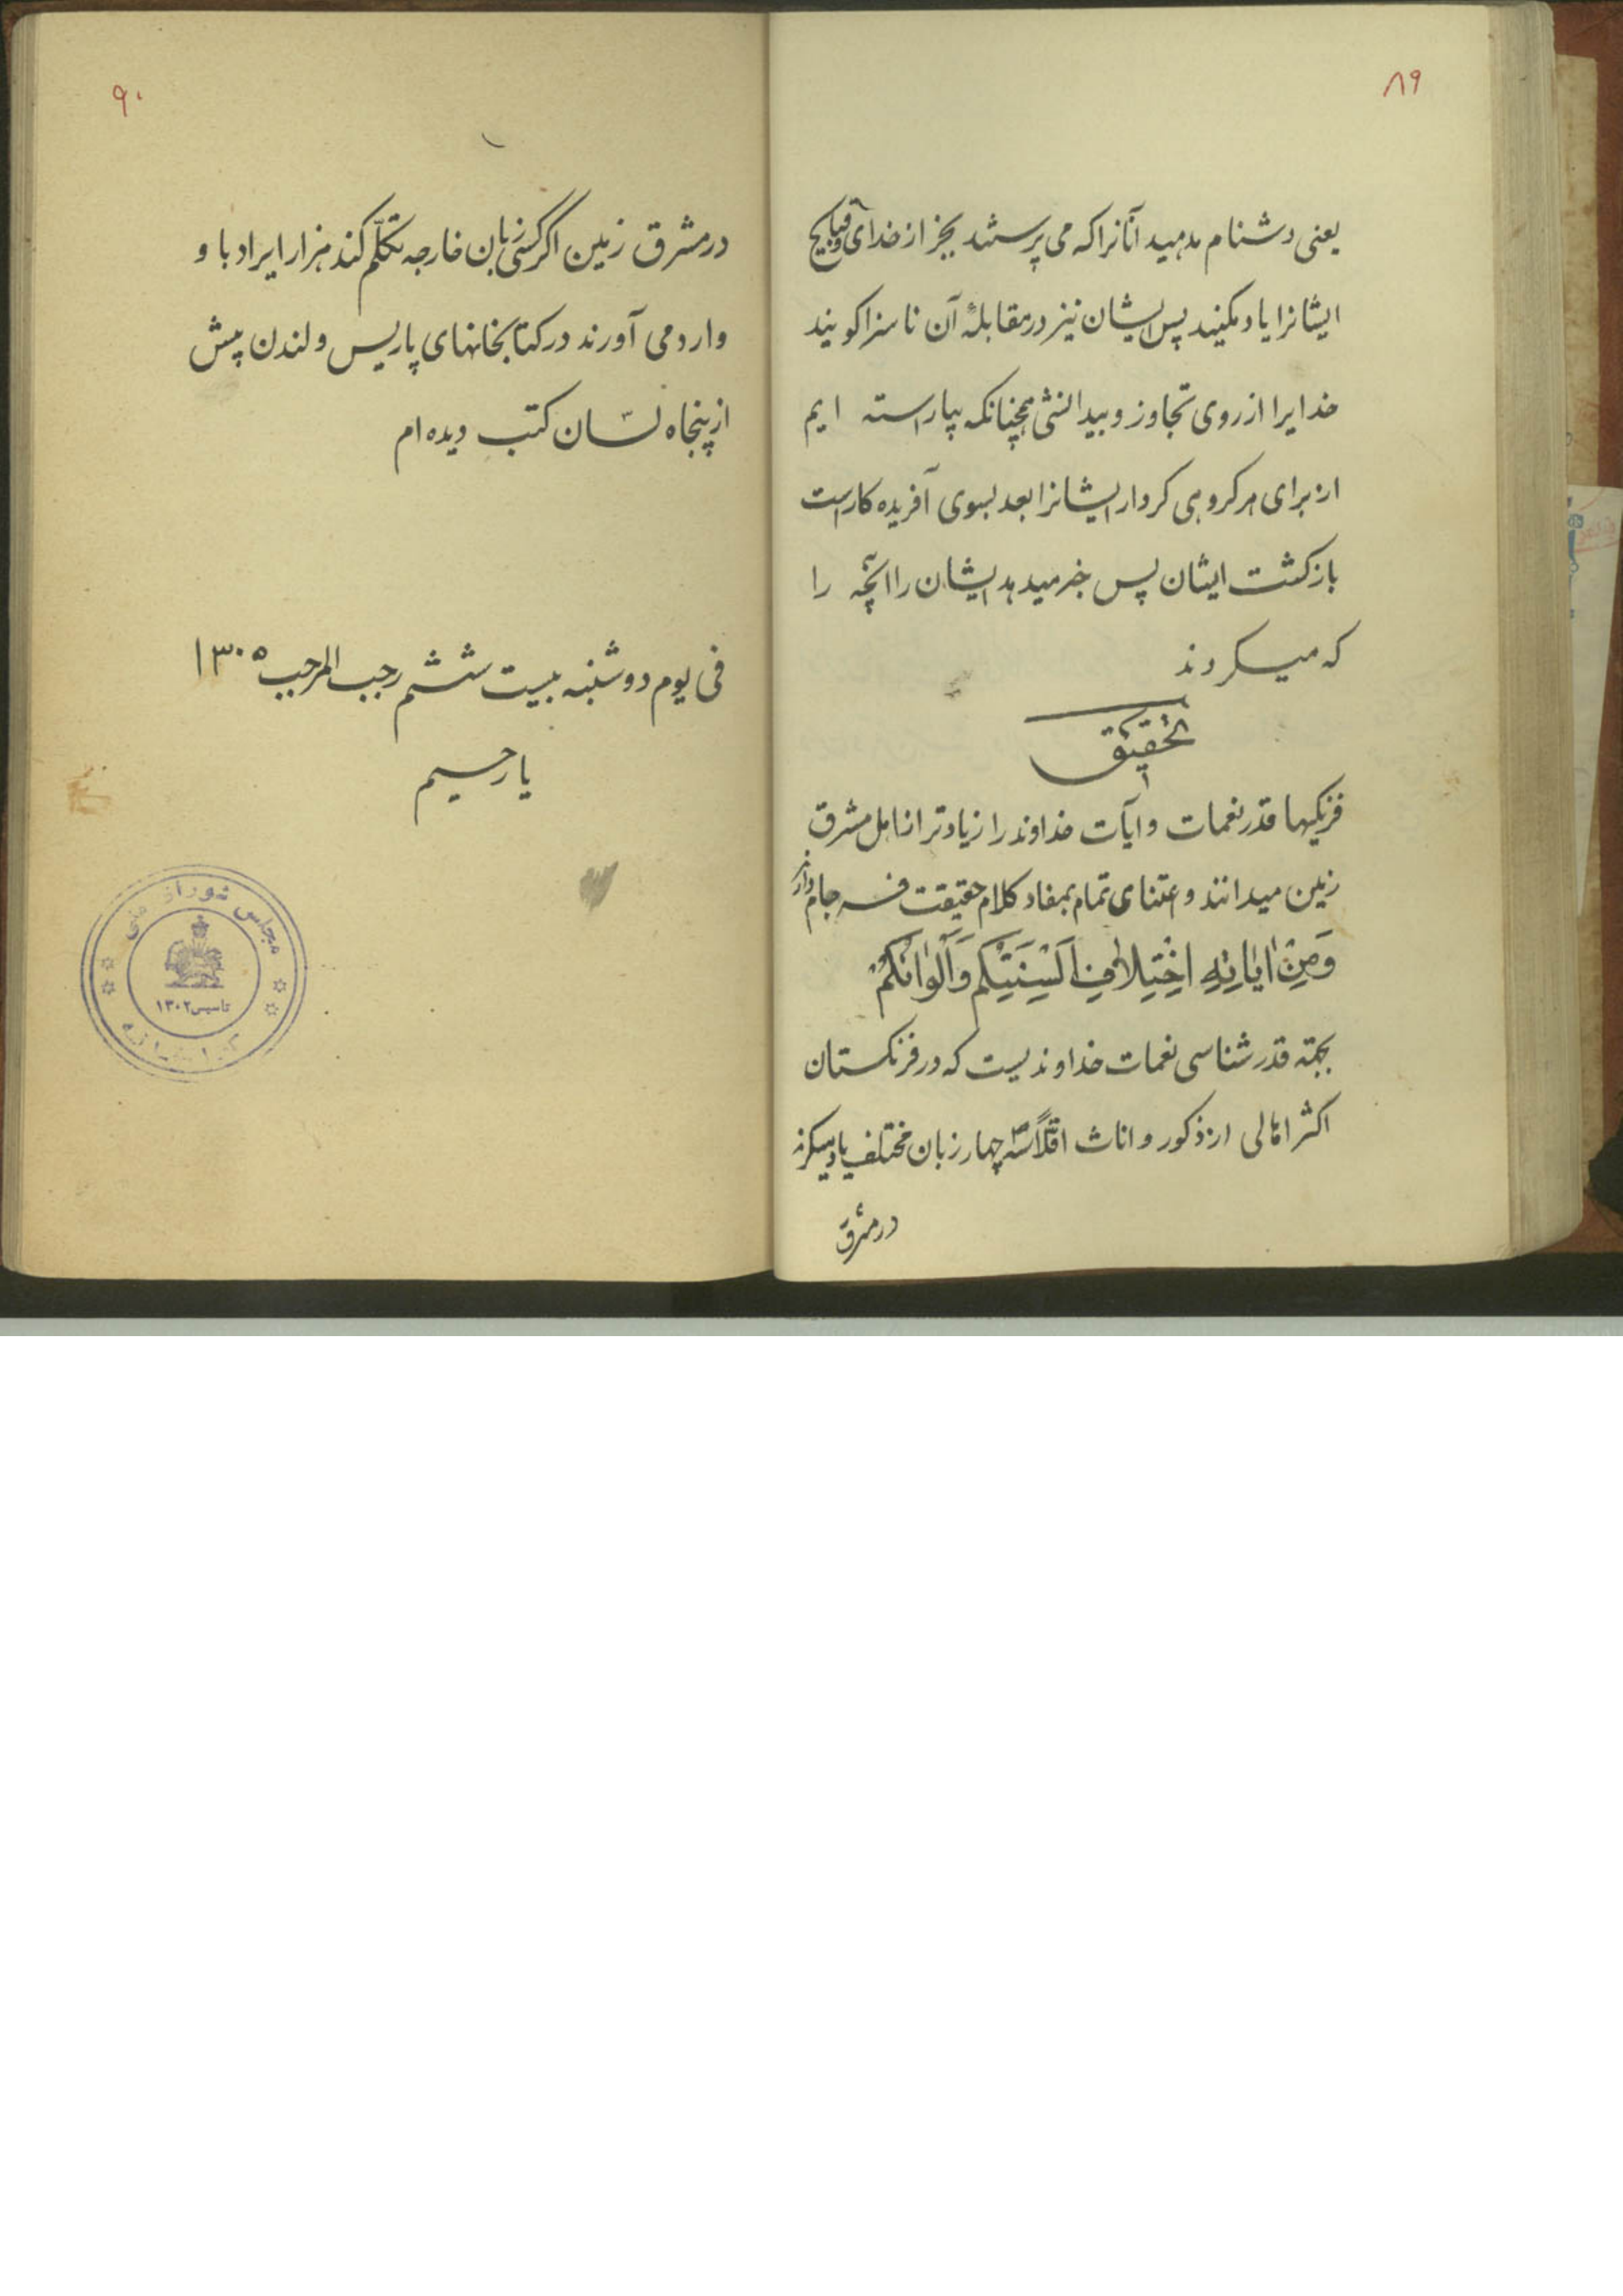 ۸۹
یعنی دشنام مدهید آنانرا که می پرستند بجز از خدای و قبایح
ایشانرا یاد مکنید پس ایشان نیز در مقابلهٔ آن ناسزا کویند
خدایرا از روی تجاوز و بیدانشی همچنانکه بیاراسته ایم
از برای هر کروهی کردار ایشانرا بعد بسوی آفریده کار است
بازکشت ایشان پس خبر میدهد ایشان را آنچه را
که میکردند
تحقیق
فرنکیها قدر نعمات و ایات خداوند را زیادتر از اهل مشرق
زمین میدانند و اعتنای تمام بمفاد کلام حقیقت فرجام دارند
وَمِنْ ایٰاتِهِ اخْتِلاٰفِ اَلْسِنَتِکُم وَاَلْوانِکُمْ
بجهته قدرشناسی نعمات خداوندیست که در فرنکستان
اکثر اهالی از ذکور و اناث اقلاً سه چهار زبان مختلف یاد میکرند
در مشرق
۹۰
در مشرق زمین اکر کسی بزبان خارجه تکلّم کند هزار ایراد با و
وارد می آورند در کتابخانهای پاریس و لندن پیش
از پنجاه لسان کتب دیده ام
فی یوم دوشنبه بیست ششم رجب المرجب ۱۳۰۵
یا رحیم
مجلس شورای ملی
تاسیس ۱۳۰۲
کتابخانه